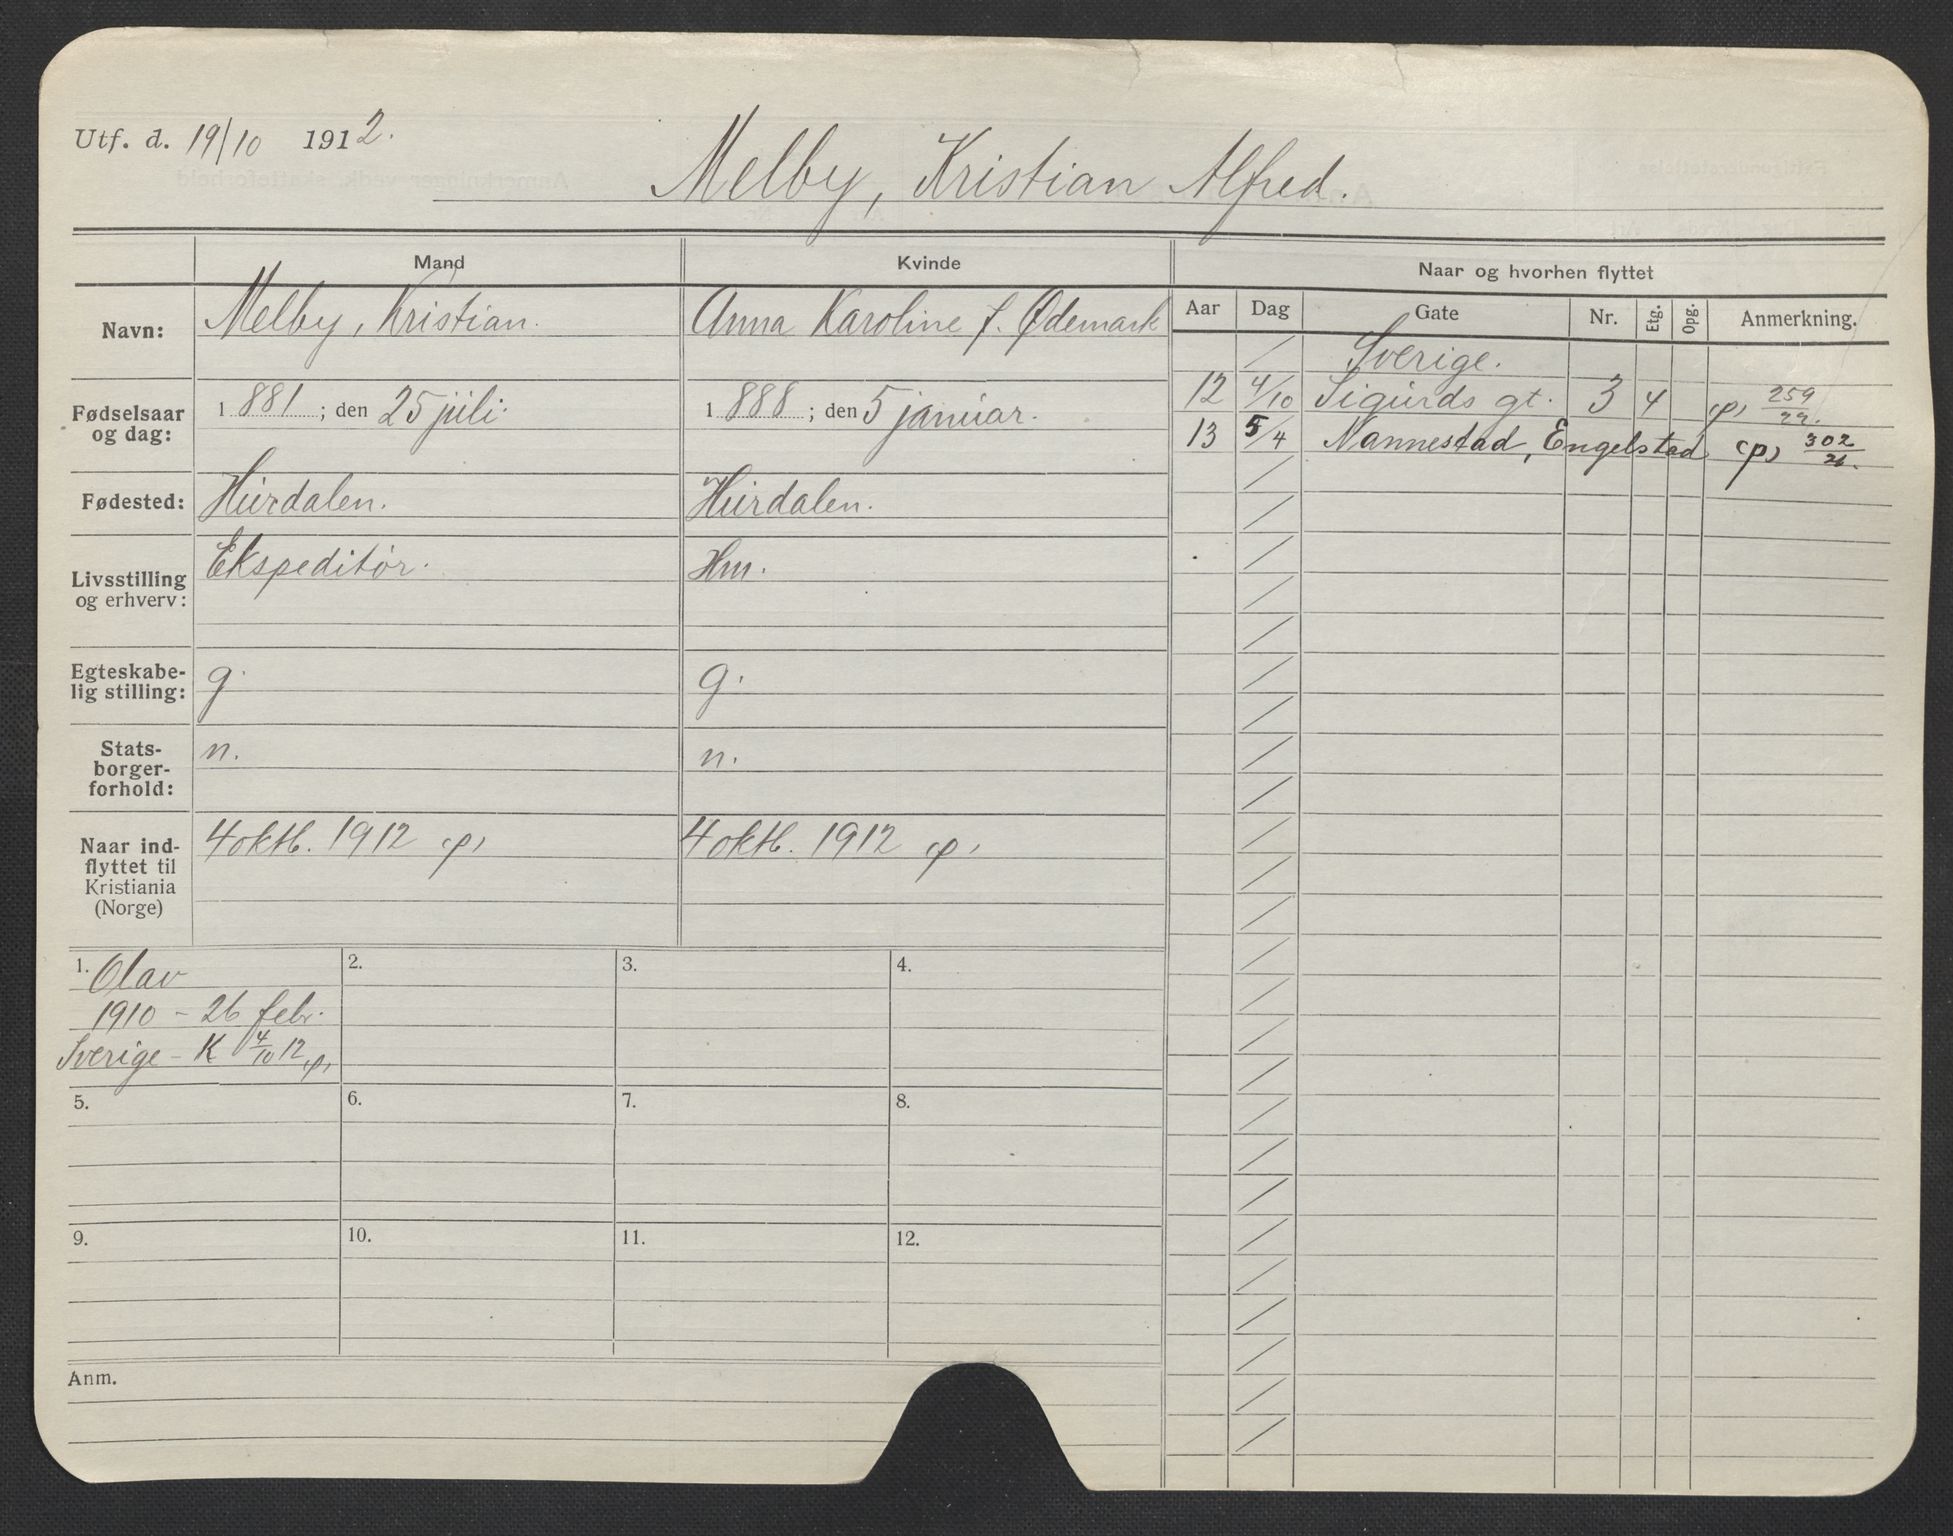 Utf. d. 19/10 1912.
Melby, Kristian Alfred.
Mand
Kvinde
Naar og hvorhen flyttet
Navn:
Melby, Kristian.
Anna Karoline f. Ødemark
Fødselsaar
og dag:
1881; den 25 juli.
1888; den 5 januar.
Fødested:
Hurdalen.
Hurdalen.
Livsstilling
og erhverv:
Ekspeditør.
Hm.
Egteskabe-
lig stilling:
g.
g.
Stats-
borger-
forhold:
n.
n.
Naar ind-
flyttet til
Kristiania
(Norge)
4 oktb. 1912 (p)
4 oktb. 1912 (p)
Aar Dag Gate Nr. Etg. Opg. Anmerkning.
Sverige.
12 4/10 Sigurds gt. 3 4 (p) 259/22.
13 5/4 Nannestad, Engelstad (p) 302/26.
1. Olav
1910 - 26 febr.
Sverige - K 4/10 12 (p)
2.
3.
4.
5.
6.
7.
8.
9.
10.
11.
12.
Anm.